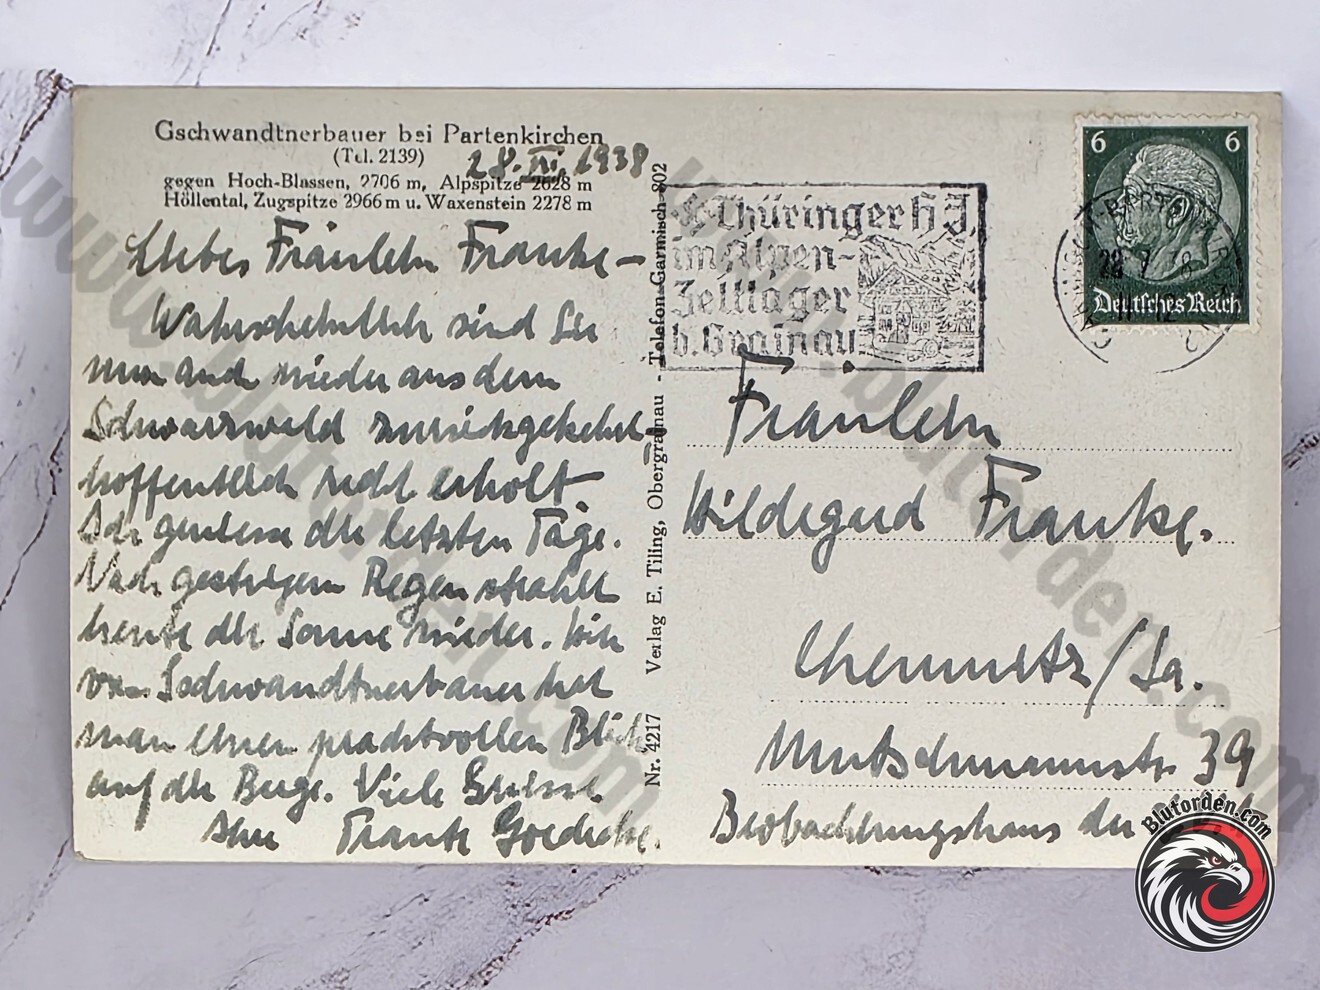 Gschwandtnerbauer bei Partenkirchen
(Tel. 2139)
gegen Hoch-Blassen, 2706 m, Alpspitze 2628 m
Höllental, Zugspitze 2966 m u. Waxenstein 2278 m
1938
Liebes Fräulein Franke –
Wahrscheinlich sind Sie
nun auch wieder aus dem
Schwarzwald zurückgekehrt –
hoffentlich recht erholt.
Ich geniesse die letzten Tage.
Nach gestrigem Regen strahlt
heute die Sonne wieder. Hier
vom Gschwandtnerbauer hat
man einen prachtvollen Blick
auf die Berge. Viele Grüsse
Ihre
Nr. 4217 Verlag E. Tilling, Obergrainau - Telefon Garmisch 302
Thüringer HJ
im Alpen-
Zeltlager
b. Grainau
6 6
Deutsches Reich
Fräulein
Hildegard Franke.
Chemnitz/Sa.
Mutschmannstr. 39
Beobachtungshaus der
www.blutorden.com
www.blutorden.com
Blutorden.com